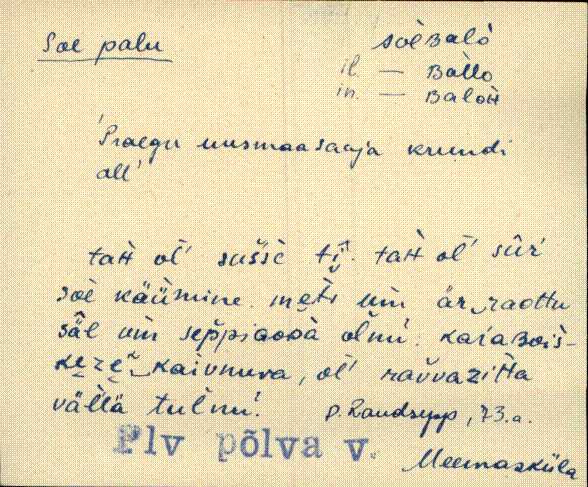 Soe palu
sòeʙalò
il. — ʙàllo
in. — ʙaloʜ
'Praegu uusmaasaaja krundi
all'
taʜ ol' sušše tị̑. taʜ ol' sūr'
sòe käümine. mets um är raottu
säl um seppiaoʙà olnu. kaiaʙois-
keze kaivnuva, ol' ravvaziʜa
vällä tulnu.
D. Raudsepp, 73. a.
Plv põlva v.
Meemasküla